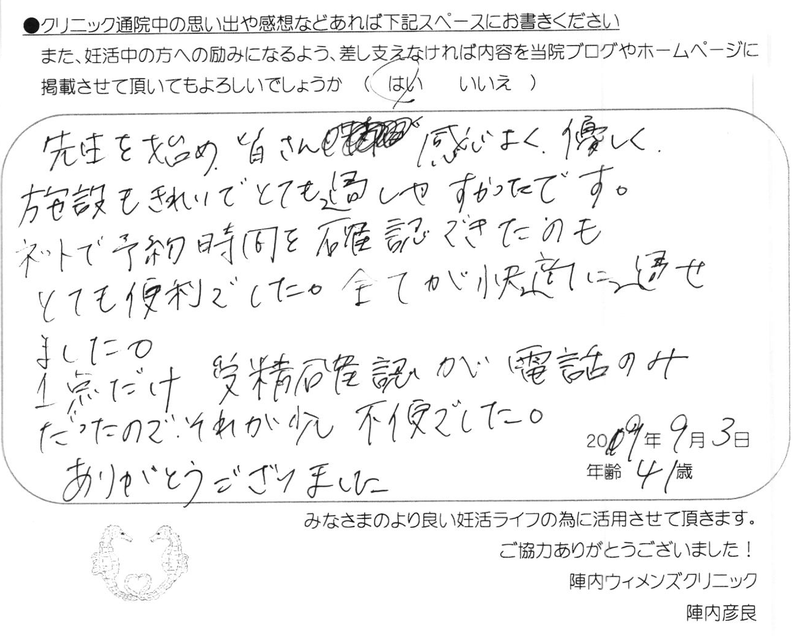 ●クリニック通院中の思い出や感想などあれば下記スペースにお書きください
また、妊活中の方への励みになるよう、差し支えなければ内容を当院ブログやホームページに
掲載させて頂いてもよろしいでしょうか （ はい　いいえ ）
先生を始め、皆さん 感じよく、優しく、
施設もきれいでとても過しやすかったです。
ネットで予約時間を確認できたのも
とても便利でした。全てが快適に過せ
ました。
1点だけ 受精確認が電話のみ
だったので、それが少し不便でした。
ありがとうございました
2019年9月3日
年齢 41歳
みなさまのより良い妊活ライフの為に活用させて頂きます。
ご協力ありがとうございました！
陣内ウィメンズクリニック
陣内彦良